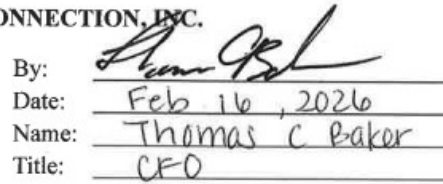 ONNECTION, INC.
By:
Date: Feb 16, 2026
Name: Thomas C Baker
Title: CFO